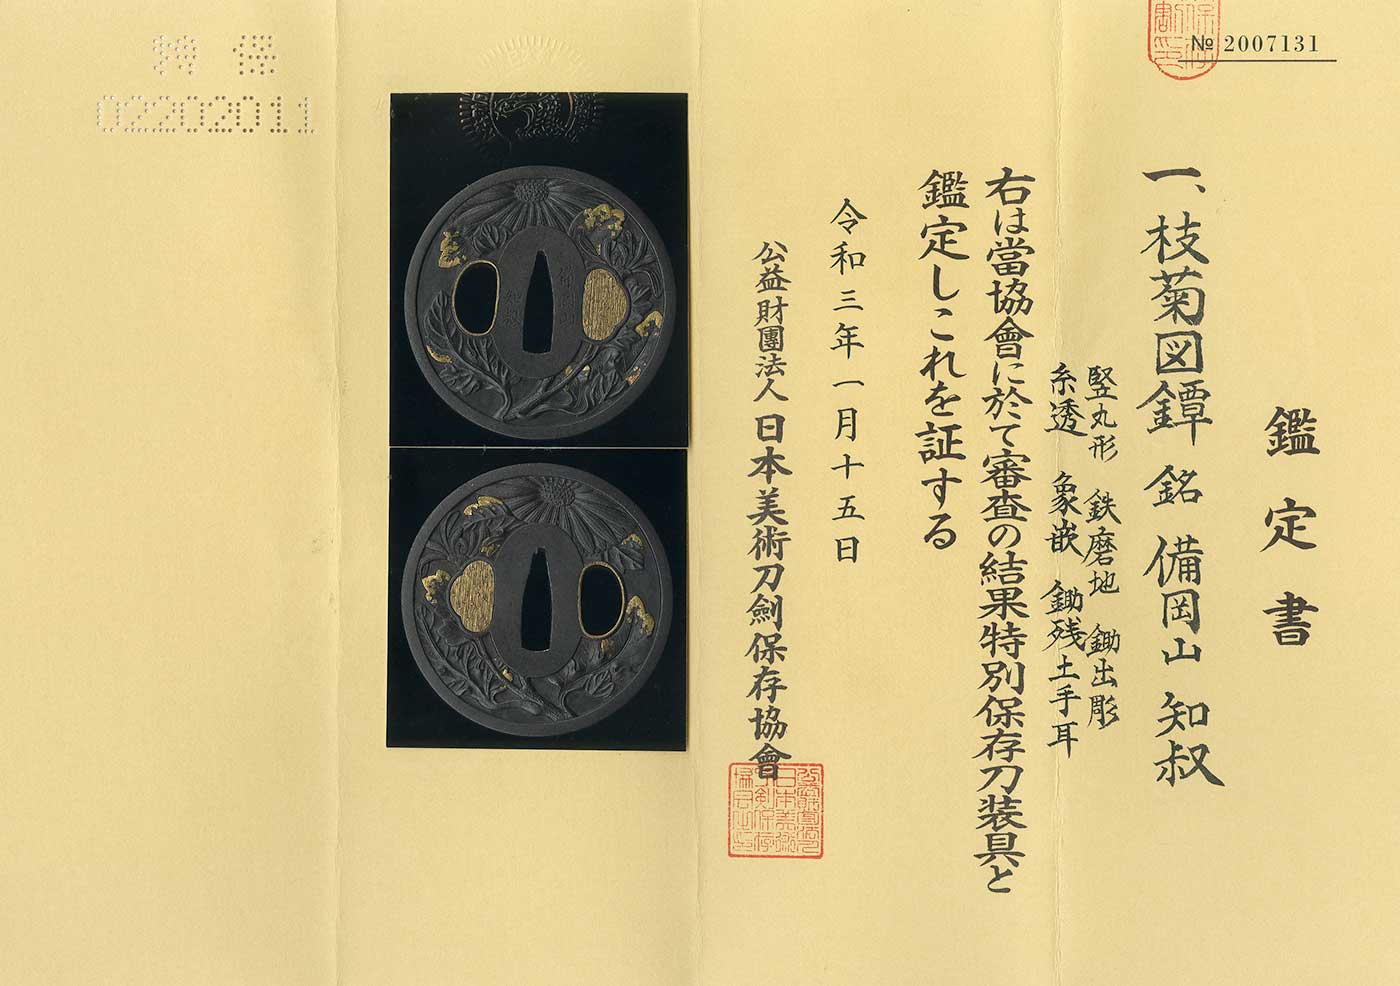 № 2007131
鑑定書
一、枝菊図鐔 銘 備岡山 知叔
竪丸形 鉄磨地 鋤出彫
糸透 象嵌 鋤残土手耳
右は當協會に於て審査の結果特別保存刀装具と
鑑定しこれを証する
令和三年一月十五日
公益財團法人日本美術刀劍保存協會
02202011